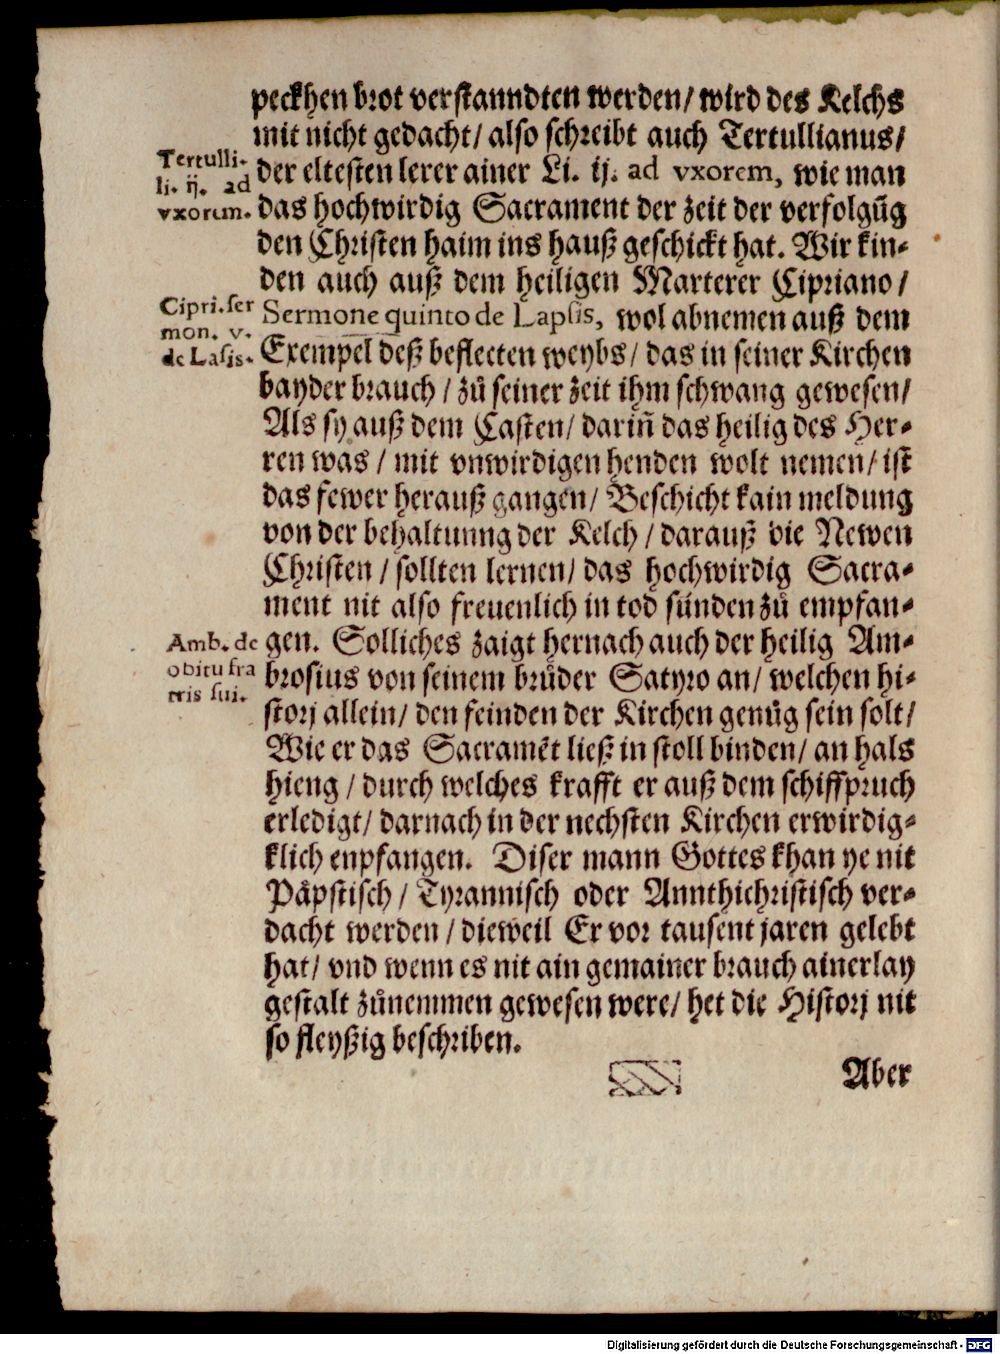 peckhen brot verstanndten werden/ wird des Kelchs
mit nicht gedacht/ also schreibt auch Tertullianus/
Tertulli.
li. ij. ad
vxorem.
der eltesten lerer ainer Li. ij. ad vxorem, wie man
das hochwirdig Sacrament der zeit der verfolgũg
den Christen haim ins hauß geschickt hat. Wir kin-
den auch auß dem heiligen Marterer Cipriano/
Cipri. ser
mon. v.
de Lasis.
Sermone quinto de Lapsis, wol abnemen auß dem
Exempel deß beflecten weybs/ das in seiner Kirchen
bayder brauch/ zů seiner zeit ihm schwang gewesen/
Als sy auß dem Casten/ dariñ das heilig des Her-
ren was/ mit vnwirdigen henden wolt nemen/ ist
das fewer herauß gangen/ Beschicht kain meldung
von der behaltunng der Kelch/ darauß die Newen
Christen/ sollten lernen/ das hochwirdig Sacra-
ment nit also freuenlich in tod sünden zů empfan-
Amb. de
obitu fra
tris sui.
gen. Solliches zaigt hernach auch der heilig Am-
brosius von seinem brůder Satyro an/ welchen hi-
storj allein/ den feinden der Kirchen genůg sein solt/
Wie er das Sacramẽt ließ in stoll binden/ an hals
hieng/ durch welches krafft er auß dem schiffpruch
erledigt/ darnach in der nechsten Kirchen erwirdig-
klich enpfangen. Diser mann Gottes khan ye nit
Påpstisch/ Tyrannisch oder Annthichristisch ver-
dacht werden/ dieweil Er vor tausent jaren gelebt
hat/ vnd wenn es nit ain gemainer brauch ainerlay
gestalt zůnemmen gewesen were/ het die Historj nit
so fleyßig beschriben.
Aber
Digitalisierung gefördert durch die Deutsche Forschungsgemeinschaft - DFG